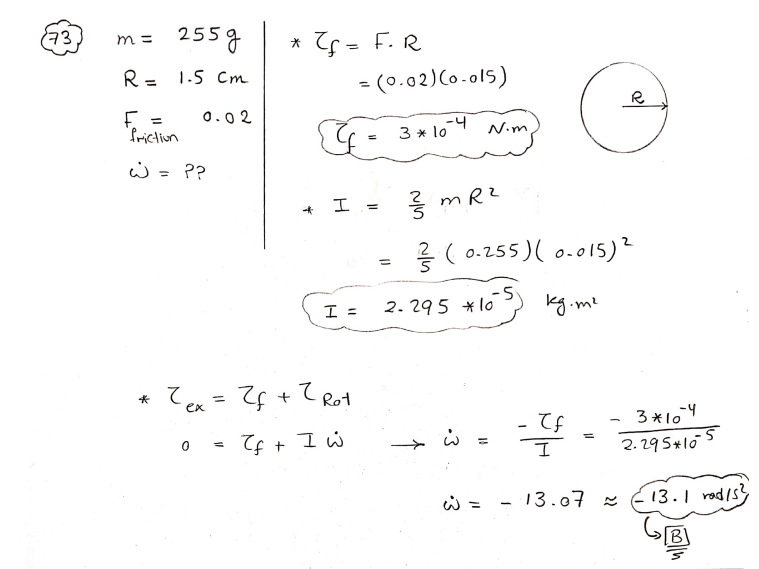 73
m = 255 g
R = 1.5 cm
F friction = 0.02
ω̇ = ??
* τf = F. R
= (0.02)(0.015)
τf = 3 * 10⁻⁴ N.m
R
* I = 2/5 m R²
= 2/5 (0.255)(0.015)²
I = 2.295 * 10⁻⁵ kg.m²
* τex = τf + τRot
0 = τf + I ω̇ → ω̇ = - τf / I = - 3*10⁻⁴ / 2.295*10⁻⁵
ω̇ = - 13.07 ≈ -13.1 rad/s²
B